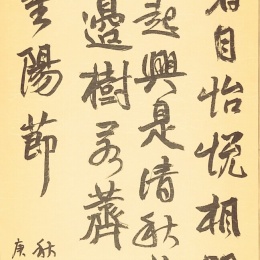 者自怡悅相
起興是清秋
邊樹若薺
重陽節
秋
庚